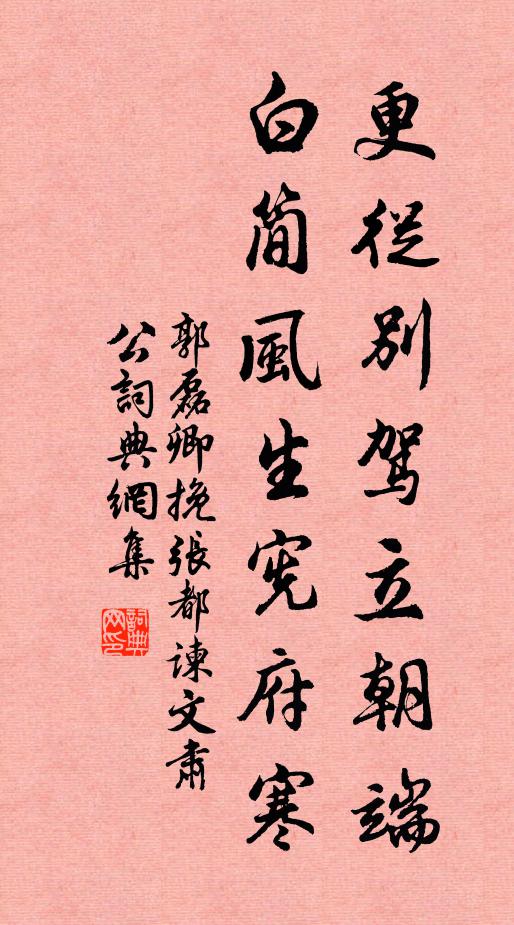 更從別駕立朝端
白簡風生憲府寒
郭磊卿挽張都諫文肅
公詞典網集
詞典網印